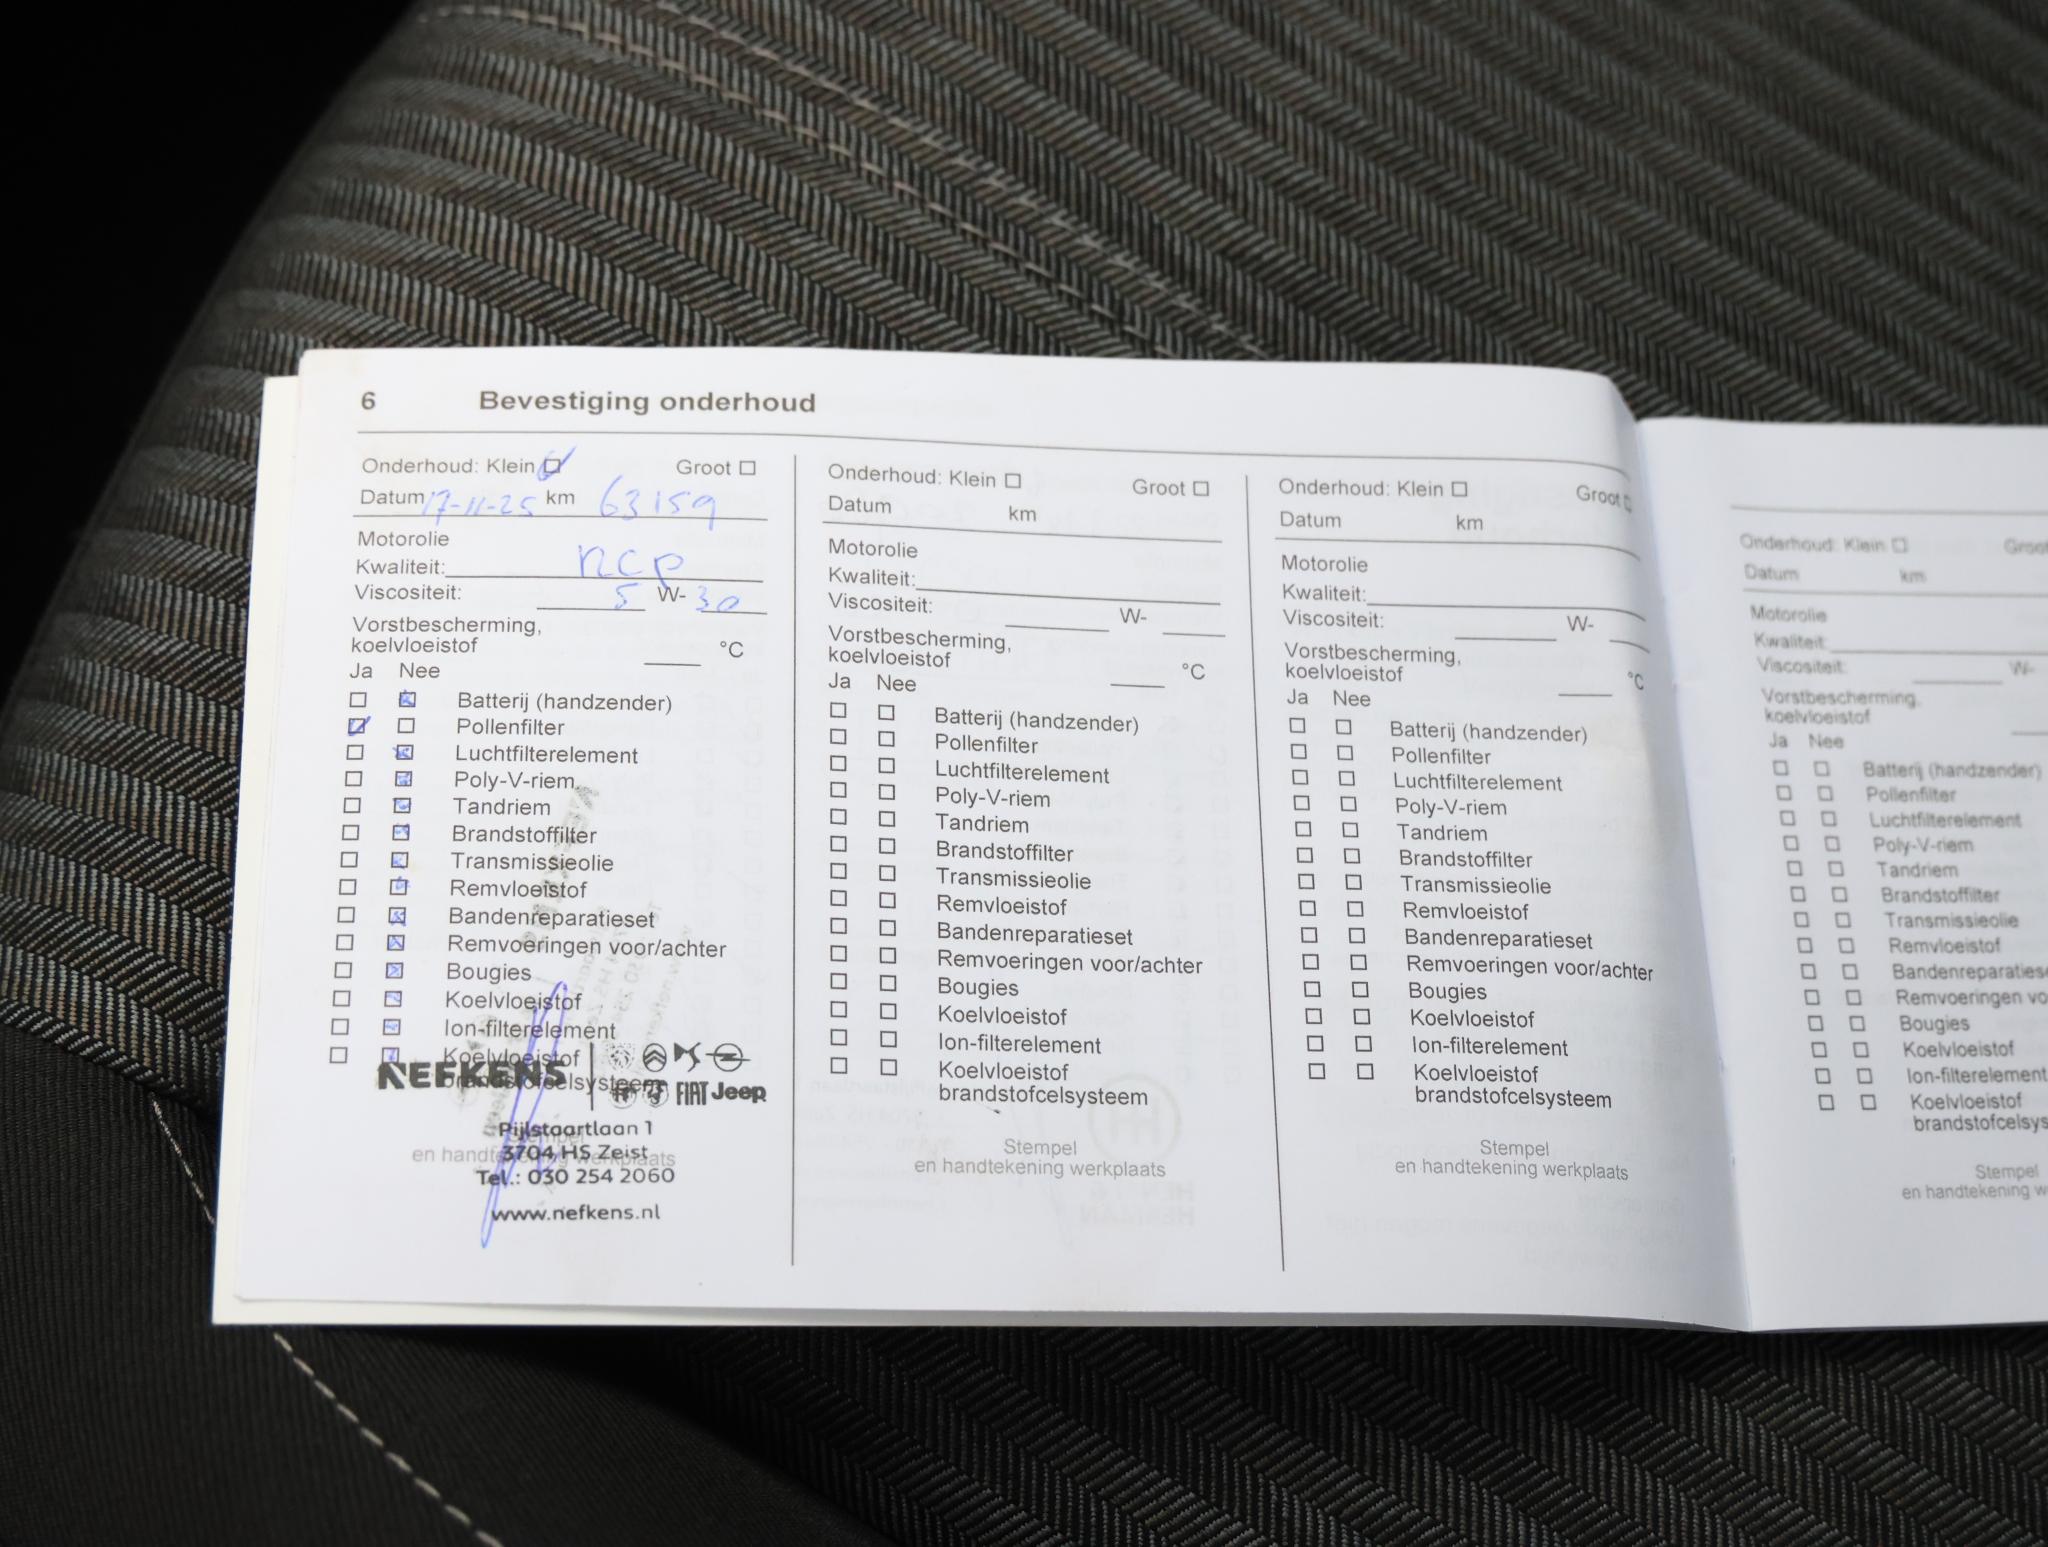 6 Bevestiging onderhoud
Onderhoud: Klein Groot
Datum 17-11-25 km 63159
Motorolie
Kwaliteit: ncp
Viscositeit: 5 W- 30
Vorstbescherming,
koelvloeistof °C
Ja Nee
Batterij (handzender)
Pollenfilter
Luchtfilterelement
Poly-V-riem
Tandriem
Brandstoffilter
Transmissieolie
Remvloeistof
Bandenreparatieset
Remvoeringen voor/achter
Bougies
Koelvloeistof
Ion-filterelement
Koelvloeistof
brandstofcelsysteem
NEFKENS
FIAT Jeep
Stempel
en handtekening werkplaats
Pijlstaartlaan 1
3704 HS Zeist
Tel.: 030 254 2060
www.nefkens.nl
Onderhoud: Klein Groot
Datum km
Motorolie
Kwaliteit:
Viscositeit: W-
Vorstbescherming,
koelvloeistof °C
Ja Nee
Batterij (handzender)
Pollenfilter
Luchtfilterelement
Poly-V-riem
Tandriem
Brandstoffilter
Transmissieolie
Remvloeistof
Bandenreparatieset
Remvoeringen voor/achter
Bougies
Koelvloeistof
Ion-filterelement
Koelvloeistof
brandstofcelsysteem
Stempel
en handtekening werkplaats
Onderhoud: Klein Groot
Datum km
Motorolie
Kwaliteit:
Viscositeit: W-
Vorstbescherming,
koelvloeistof °C
Ja Nee
Batterij (handzender)
Pollenfilter
Luchtfilterelement
Poly-V-riem
Tandriem
Brandstoffilter
Transmissieolie
Remvloeistof
Bandenreparatieset
Remvoeringen voor/achter
Bougies
Koelvloeistof
Ion-filterelement
Koelvloeistof
brandstofcelsysteem
Stempel
en handtekening werkplaats
Onderhoud: Klein Groot
Datum km
Motorolie
Kwaliteit:
Viscositeit: W-
Vorstbescherming,
koelvloeistof
Ja Nee
Batterij (handzender)
Pollenfilter
Luchtfilterelement
Poly-V-riem
Tandriem
Brandstoffilter
Transmissieolie
Remvloeistof
Bandenreparatiese
Remvoeringen vo
Bougies
Koelvloeistof
Ion-filterelement
Koelvloeistof
brandstofcelsys
Stempel
en handtekening w